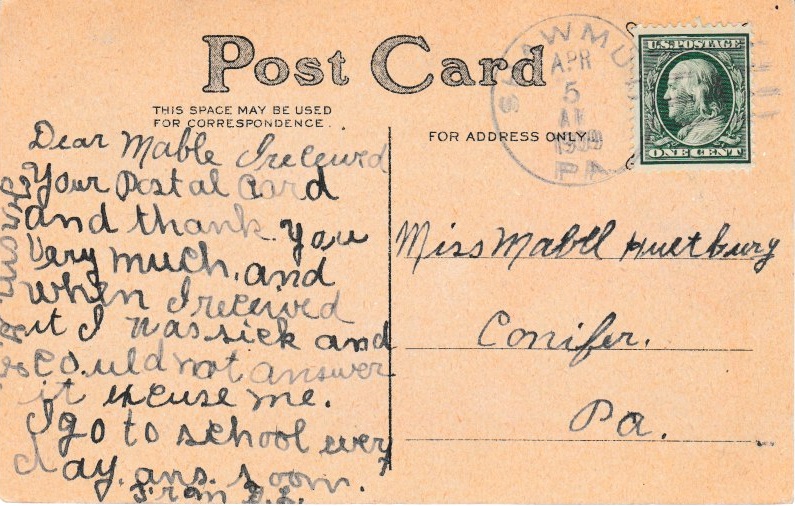 Post Card
THIS SPACE MAY BE USED
FOR CORRESPONDENCE.
FOR ADDRESS ONLY
APR
5
AM
1909
PA
U.S. POSTAGE
ONE CENT
Dear Mable I received
Your Postal Card
and thank you
Very much, and
When I received
it I was sick and
could not answer
it excuse me.
I go to school every
day. ans. soon.
From
Miss Mabel Hultburg
Conifer.
Pa.